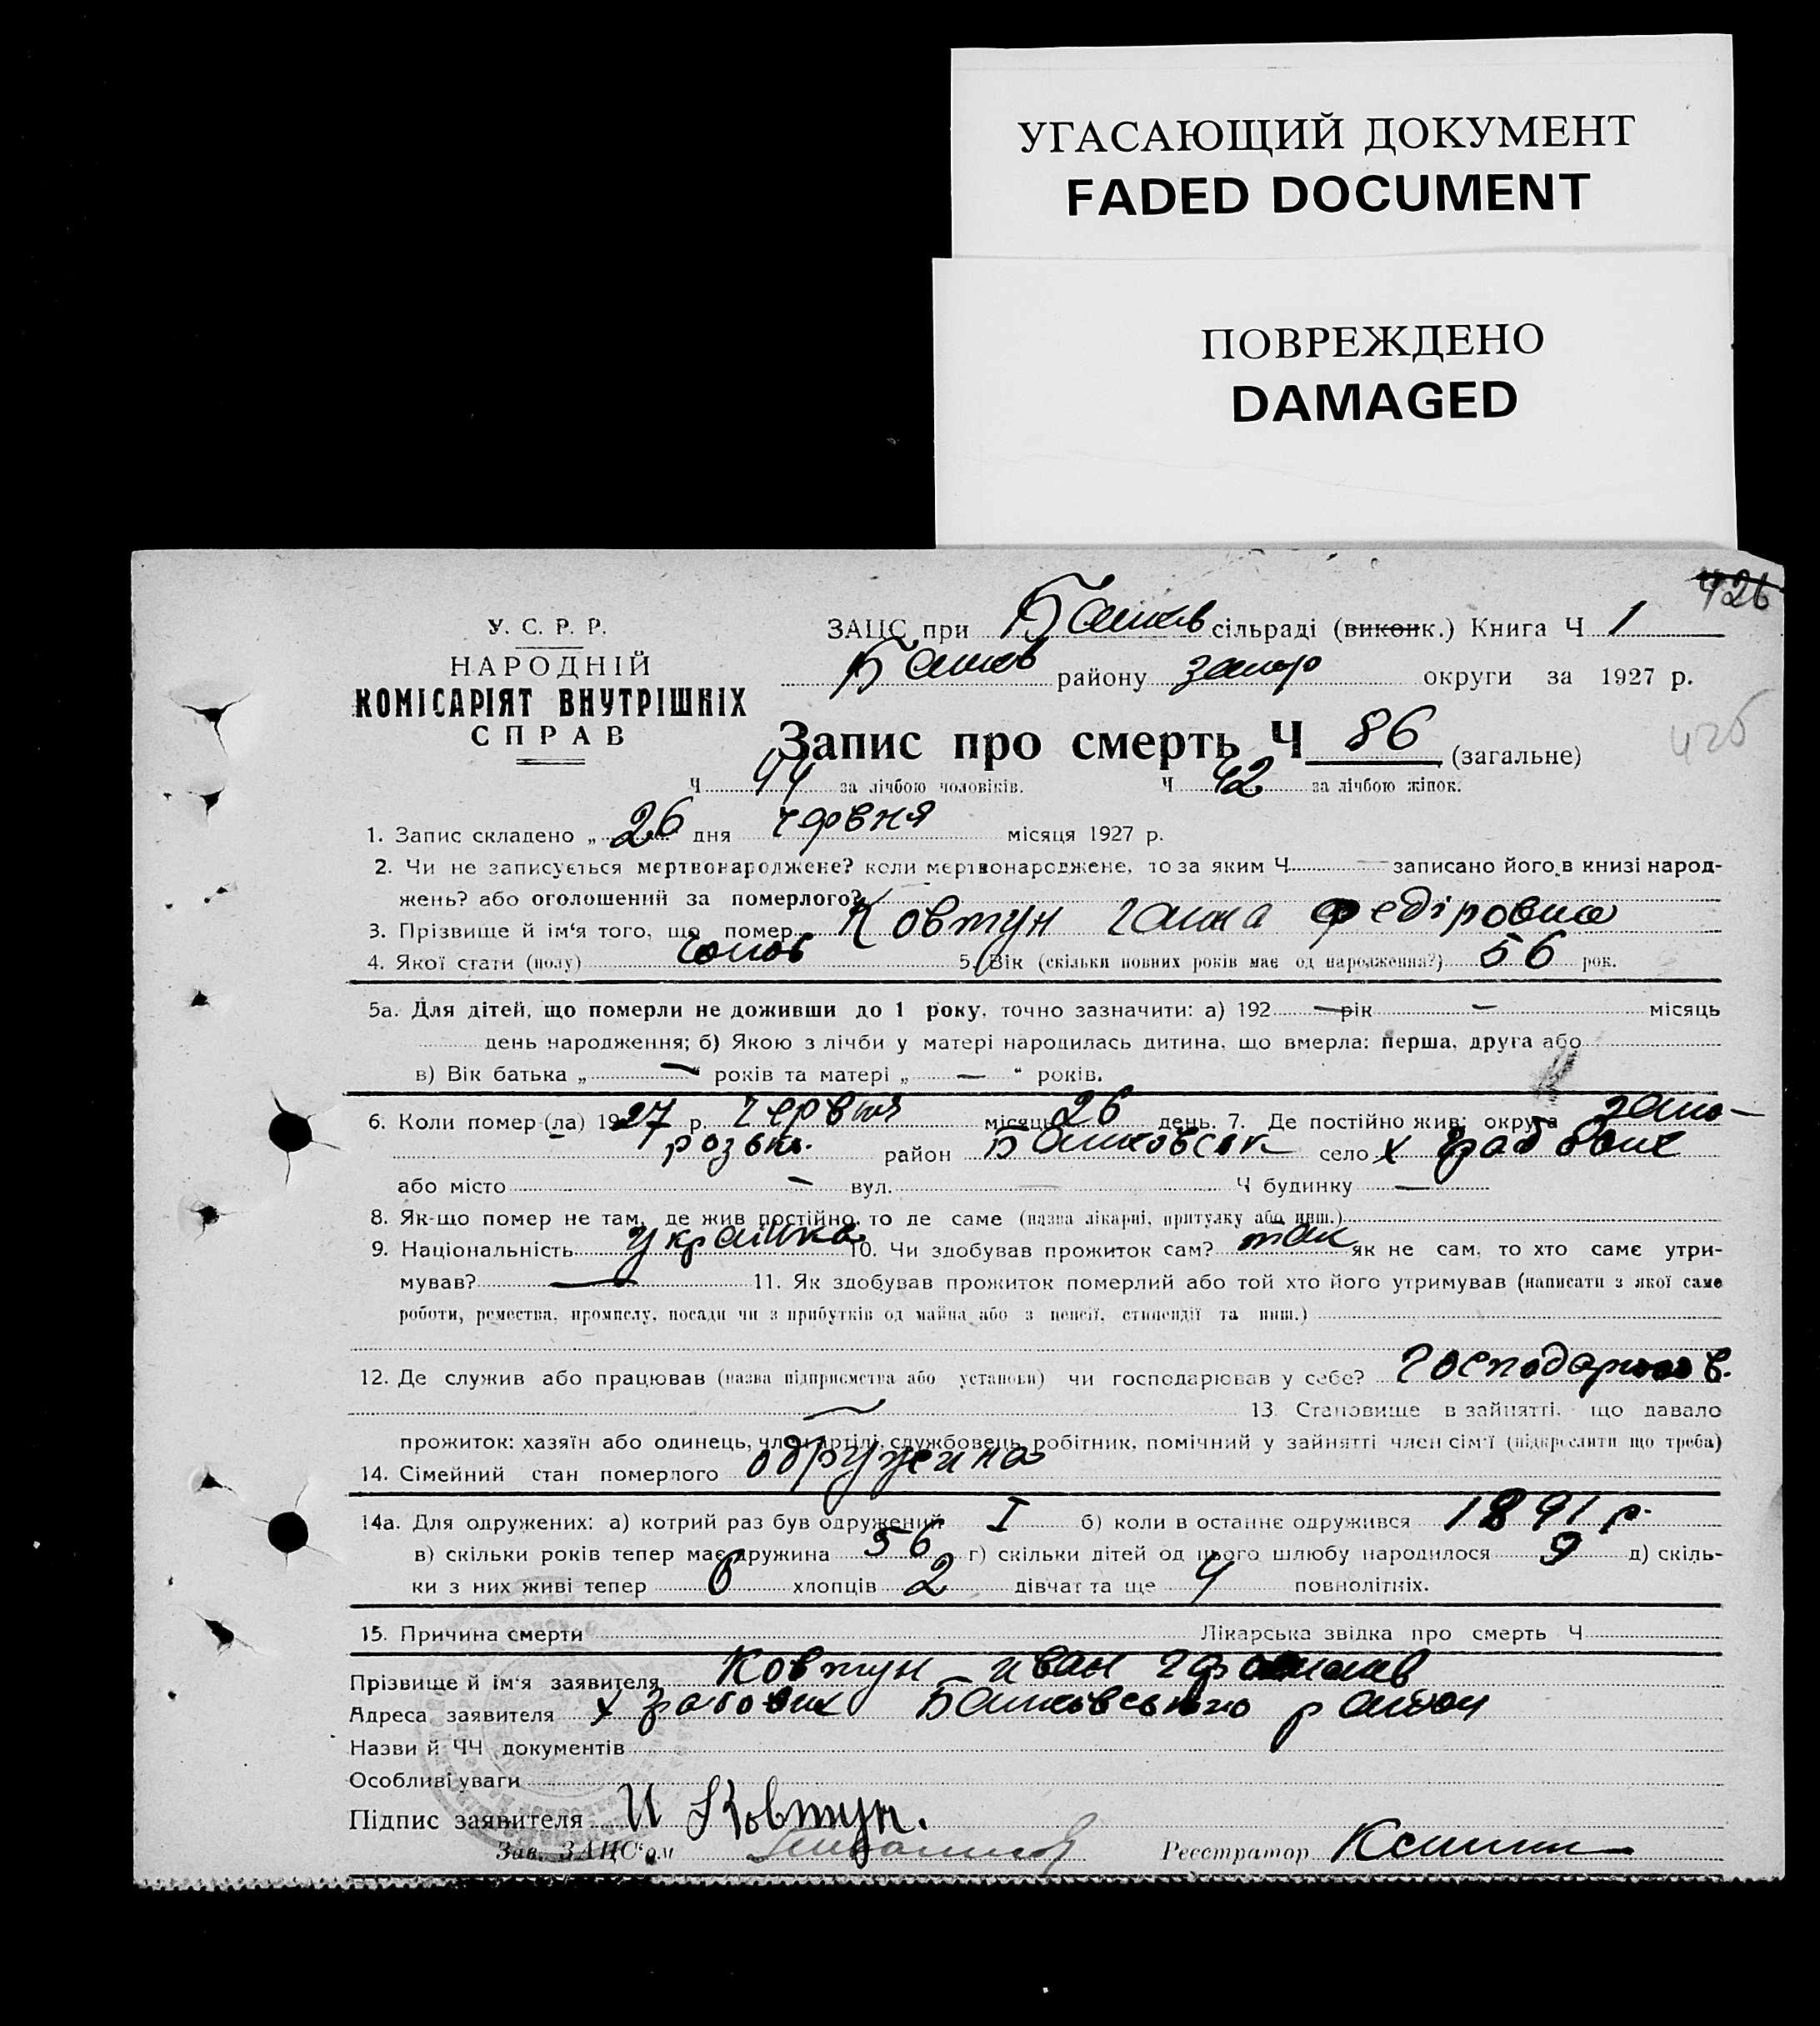 УГАСАЮЩИЙ ДОКУМЕНТ
FADED DOCUMENT
ПОВРЕЖДЕНО
DAMAGED
426
У. С. Р. Р.
НАРОДНІЙ
КОМІСАРІЯТ ВНУТРІШНІХ
СПРАВ
ЗАЦС при Башев сільраді (виконк.) Книга Ч 1
району Запор округи за 1927 р.
426
Запис про смерть Ч 86 (загальне)
Ч 44 за лічбою чоловіків. Ч 42 за лічбою жінок.
1. Запис складено „ 26 дня червня місяця 1927 р.
2. Чи не записується мертвонароджене? коли мертвонароджене, то за яким Ч — записано його в книзі народ-
жень? або оголошений за померлого?
3. Прізвище й ім'я того, що помер Ковтун Ганна Федіровна
4. Якої стати (полу) 5. Вік (скільки повних років має од народження?) 56 рок.
5а. Для дітей, що померли не доживши до 1 року, точно зазначити: а) 192 — рік — місяць
день народження; б) Якою з лічби у матері народилась дитина, що вмерла: перша, друга або
в) Вік батька „ — “ років та матері „ — “ років.
6. Коли помер (ла) 1927 р. червня місяць 26 день. 7. Де постійно жив: округа Запо-
розька район село х
або місто — вул. — Ч будинку —
8. Як-що помер не там, де жив постійно, то де саме (назва лікарні, притулку або инш.)
9. Національність Українка 10. Чи здобував прожиток сам? так як не сам, то хто саме утри-
мував? — 11. Як здобував прожиток померлий або той хто його утримував (написати з якої саме
роботи, ремества, промислу, посади чи з прибутків од майна або з пенсії, стипендії та инш.)
12. Де служив або працював (назва підприємства або установи) чи господарював у себе? господарював.
— 13. Становище в зайнятті, що давало
прожиток: хазяїн або одинець, член артілі, службовець, робітник, помічний у зайнятті член сім'ї (підкреслити що треба)
14. Сімейний стан померлого одружена
14а. Для одружених: а) котрий раз був одружений I б) коли в останнє одружився 1891 р.
в) скільки років тепер має дружина 56 г) скільки дітей од цього шлюбу народилося 9 д) скіль-
ки з них живі тепер 6 хлопців 2 дівчат та ще 4 повнолітніх.
15. Причина смерти Лікарська звідка про смерть Ч
Прізвище й ім'я заявителя Ковтун Иван
Адреса заявителя х
Назви й ЧЧ документів
Особливі уваги
Підпис заявителя И Ковтун.
Зав. ЗАЦС'ом Реєстратор